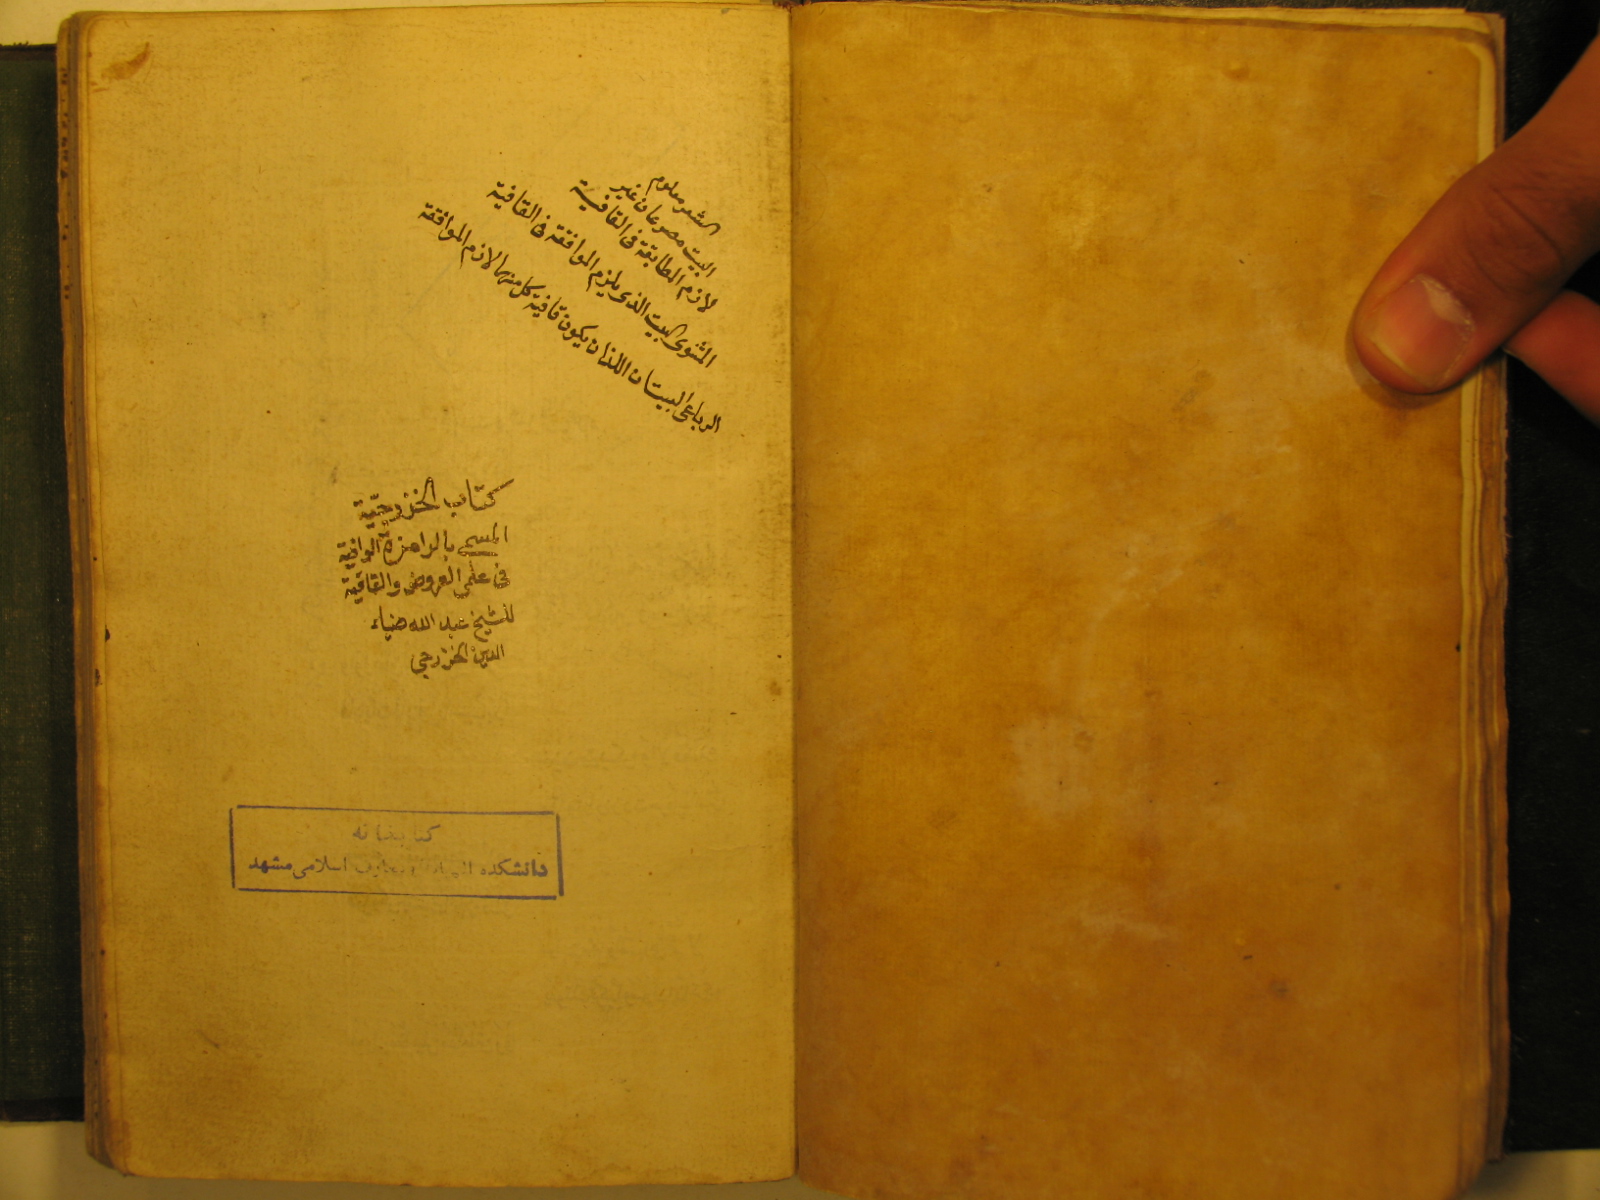 الشعر معلوم
البيت مصرعان غير
لازم المطابقة فى القافية
المثنوى البيت الذى يلزم الموافقة فى القافية
الرباعى البيتان اللذان يكون قافية كل منهما لازم الموافقة
كتاب الخزرجيّة
المسمى بالرامزة الوافية
فى علمى العروض والقافية
للشيخ عبد الله ضياء
الدين الخزرجى
كتابخانه
دانشكده الهيات و معارف اسلامى مشهد